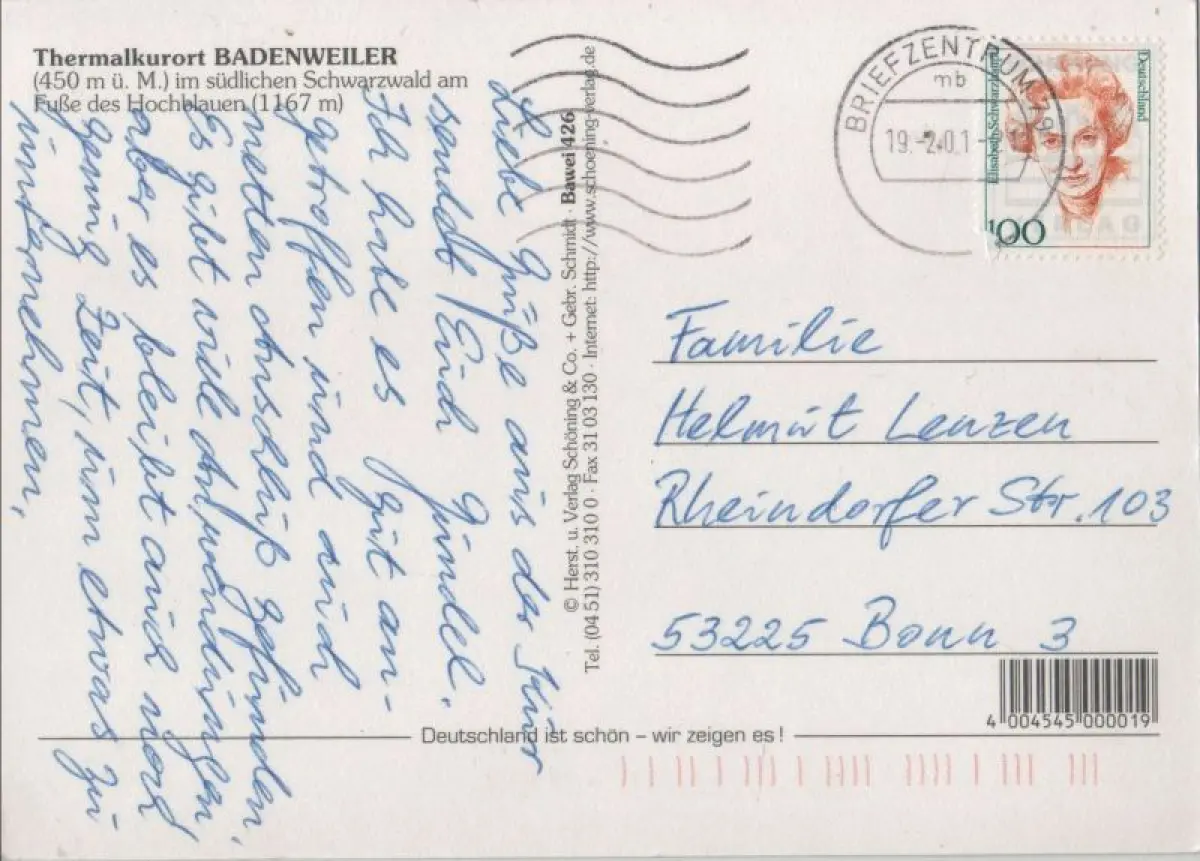 Thermalkurort BADENWEILER
(450 m ü. M.) im südlichen Schwarzwald am
Fuße des Hochblauen (1167 m)
Liebe Grüße aus der Kur
sendet Euch Gündel.
Ich habe es gut an-
getroffen und auch
netten Anschluß gefunden.
Es gibt viele Anwendungen,
aber es bleibt auch noch
genug Zeit, um etwas zu
unternehmen.
© Herst. u. Verlag Schöning & Co. + Gebr. Schmidt · Bawei 426
Tel. (04 51) 310 310 0 · Fax 31 03 130 · Internet: http://www.schoening-verlag.de
BRIEFZENTRUM 79
mb
19.-2.01-
Deutschland
Elisabeth Schwarzhaupt
100
Familie
Helmut Lenzen
Rheindorfer Str. 103
53225 Bonn 3
4 004545 000019
Deutschland ist schön – wir zeigen es!